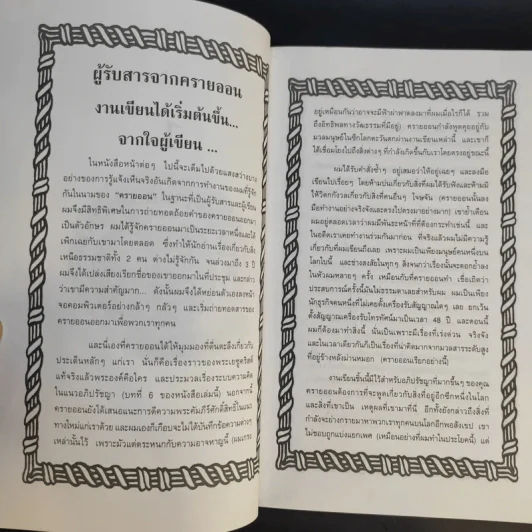 ผู้รับสารจากครายออน
งานเขียนได้เริ่มต้นขึ้น...
จากใจผู้เขียน ...
ในหนังสือหน้าต่อๆ ไปนี้จะเต็มไปด้วยแสงสว่างบาง
อย่างของการรู้แจ้งเห็นจริงอันเกิดจากการทำงานของผมที่รู้จัก
กันในนามของ “ครายออน” ในฐานะที่เป็นผู้รับสารและผู้เขียน
ผมจึงมีสิทธิพิเศษในการถ่ายทอดถ้อยคำของครายออนออกมา
เป็นตัวอักษร ผมได้รู้จักครายออนมาเป็นระยะเวลาหนึ่งและได้
เพิกเฉยกับเขามาโดยตลอด ซึ่งทำให้นักอ่านเรื่องเกี่ยวกับสิ่ง
เหนือธรรมชาติทั้ง 2 คน ต่างไม่รู้จักกัน จนล่วงมาถึง 3 ปี
ผมจึงได้เปล่งเสียงเรียกชื่อของเขาออกมาในที่ประชุม และกล่าว
ว่าเขามีความสำคัญมาก... ดังนั้นผมจึงได้หย่อนตัวเองลงหน้า
จอคอมพิวเตอร์อย่างกล้าๆ กลัวๆ และเริ่มถ่ายทอดสารของ
ครายออนออกมาเพื่อพวกเราทุกคน
และนี่เองที่ครายออนได้ให้ผมมองที่ตื่นตะลึงเกี่ยวกับ
ประเด็นหลักๆ แก่เรา นั่นก็คือเรื่องราวของพระเยซูคริสต์
แท้จริงแล้วพระองค์คือใคร และประมวลเรื่องระบบความคิด
ในแนวอภิปรัชญา (บทที่ 6 ของหนังสือเล่มนี้) นอกจากนี้
ครายออนยังได้เสนอแนะการตีความพระคัมภีร์ศักดิ์สิทธิ์ในแนว
ทางใหม่แก่เราด้วย และผมเองก็เกือบจะไม่ได้บันทึกข้อความต่างๆ
เหล่านั้นไว้ เพราะมัวแต่ตระหนกกับความอาจหาญนี้ (ผมเกรง
อยู่เหมือนกันว่าอาจจะมีฟ้าผ่าฟาดลงมาที่ผมเมื่อไรก็ได้ รวม
ถึงอิทธิพลทางวัฒธรรมที่มีอยู่) ครายออนกำลังพูดคุยอยู่กับ
มวลมนุษย์ในซีกโลกตะวันตกผ่านงานเขียนเหล่านี้ และเขาก็
ได้เชื่อมโยงไปถึงสิ่งต่างๆ ที่กำลังเกิดขึ้นกับเราโดยตรงอยู่ขณะนี้
ผมได้รับคำสั่งซ้ำๆ อยู่เสมอว่าให้อยู่เฉยๆ และลงมือ
เขียนไปเรื่อยๆ โดยห้ามปนเกี่ยวกับสิ่งที่ผมได้รับฟังและห้ามมี
ให้วิตกกังวลเกี่ยวกับสิ่งที่คนอื่นๆ โจษจัน (ครายออนนั้นลง
มือทำงานอย่างจริงจังและตรงไปตรงมาอย่างมาก) เขาย้ำเตือน
ผมอยู่ตลอดเวลาว่าผมมีพันธะหน้าที่ที่ต้องการทำเช่นนี้ และ
ในอดีตเราเคยทำงานร่วมกันมาก่อน ที่จริงแล้วผมไม่มีความรู้
เกี่ยวกับที่ผมเขียนถึงเลย เพราะผมเป็นเพียงมนุษย์คนหนึ่งบน
โลกใบนี้ และช่างสงสัยในทุกๆ สิ่งจนกว่าเรื่องนั้นจะตอกย้ำลง
ในหัวผมหลายๆ ครั้ง เหมือนกับที่ครายออนทำ เชื่อเถิดว่า
ประสบการณ์ครั้งนี้มันไม่ธรรมดาเลยสำหรับผม ผมเป็นเพียง
นักธุรกิจคนหนึ่งที่ไม่เคยตั้งเครื่องรับสัญญาณใดๆ เลย ยกเว้น
ตั้งสัญญาณเครื่องรับโทรทัศน์มาเป็นเวลา 48 ปี และตอนนี้
ผมก็ต้องมาทำสิ่งนี้ นั่นเป็นเพราะมีเรื่องที่เร่งด่วน จริงจัง
และในเวลาเดียวกันก็เป็นเรื่องที่น่าติดตามจากมวลสารระดับสูง
ที่อยู่ข้างหลังม่านหมอก (ครายออนเรียกอย่างนี้)
งานเขียนชิ้นนี้มีไว้สำหรับอภิปรัชญาที่มากขึ้นๆ ของคุณ
ครายออนต้องการที่จะพูดเกี่ยวกับสิ่งที่อยู่อีกซีกหนึ่งในโลก
และสิ่งที่เขาเป็น เหตุผลที่เขามาที่นี่ อีกทั้งยังกล่าวถึงสิ่งที่
กำลังจะย่างกรายมาหาพวกเราทุกคนบนโลกอีกพอสังเขป เขา
ไม่ชอบถูกแบ่งแยกเพศ (เหมือนอย่างที่ผมทำในประโยคนี้) แต่